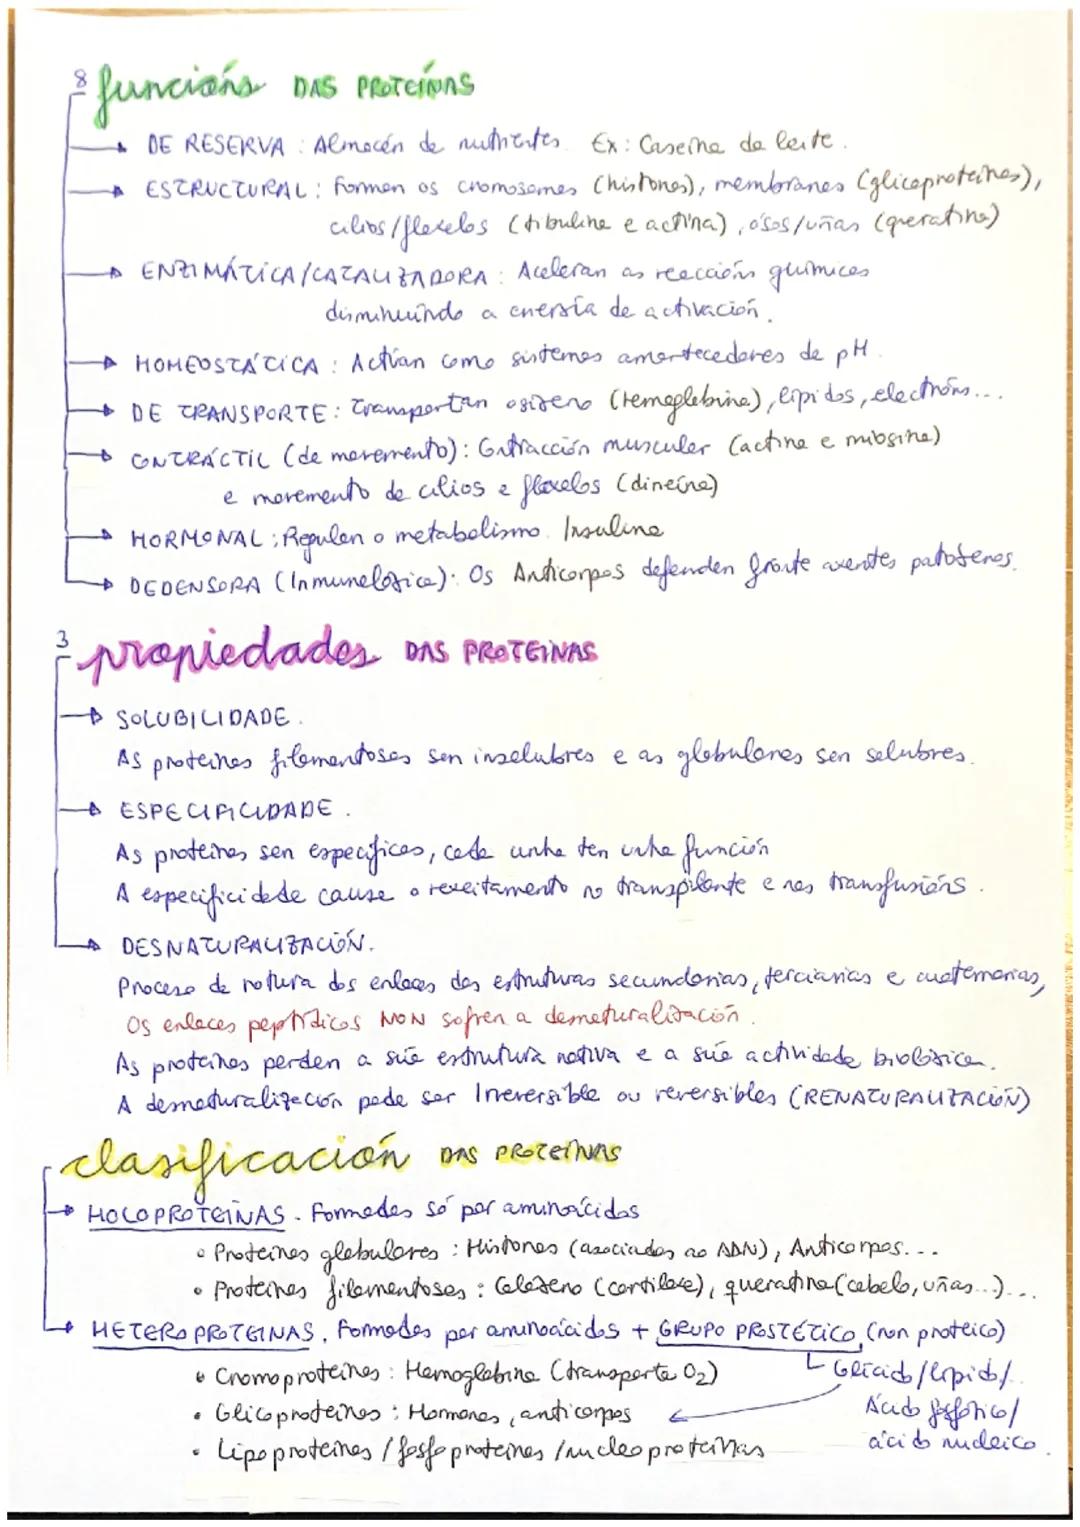 8 funcións DAS PROTEÍNAS
DE RESERVA: Almacén de nutrientes. Ex: Caseína da leite.
ESTRUCTURAL: Forman os cromosomas (histonas), membranas (glicoproteínas),
cilios/flaxelos (tibulina e actina), ósos/uñas (queratina)
ENZIMÁTICA/CATALIZADORA: Aceleran as reaccións químicas
disminuíndo a enerxía de activación.
HOMEOSTÁTICA: Actúan como sistemas amortecedores de pH.
DE TRANSPORTE: Transportan osíxeno (Hemoglobina), lípidos, electróns...
CONTRÁCTIL (de movemento): Contracción muscular (actina e miosina)
e movemento de cilios e flaxelos (dineína)
HORMONAL: Regulan o metabolismo. Insulina
DEDENSORA (Inmunolóxica): Os Anticorpos defenden fronte axentes patóxenos.
3 propiedades DAS PROTEINAS
SOLUBILIDADE.
As proteínas filamentosas son insolubres e as globulares son solubres.
ESPECIFICIDADE.
As proteínas son específicas, cada unha ten unha función
A especificidade causa o rexeitamento no transplante e nas transfusións.
DESNATURALIZACIÓN.
Proceso de rotura dos enlaces das estruturas secundarias, terciarias e cuaternarias,
Os enlaces peptídicos NON sofren a desnaturalización.
As proteínas perden a súa estrutura nativa e a súa actividade biolóxica.
A desnaturalización pode ser Irreversible ou reversibles (RENATURALIZACIÓN)
clasificación DAS PROTEÍNAS
HOLOPROTEÍNAS. Formadas só por aminoácidos
• Proteínas globulares: Histonas (asociadas ao ADN), Anticorpos...
• Proteínas filamentosas: Coláxeno (cartílaxe), queratina (cabelo, uñas...)...
HETEROPROTEINAS. Formadas por aminoácidos + GRUPO PROSTÉTICO (non proteico)
• Cromoproteínas: Hemoglobina (transporta O2)
Glícido/lípido/..
• Glicoproteínas: Hormonas, anticorpos
Ácido fosfórico/
• Lipoproteínas / fosfoproteínas / nucleoproteínas
ácido nucleico.